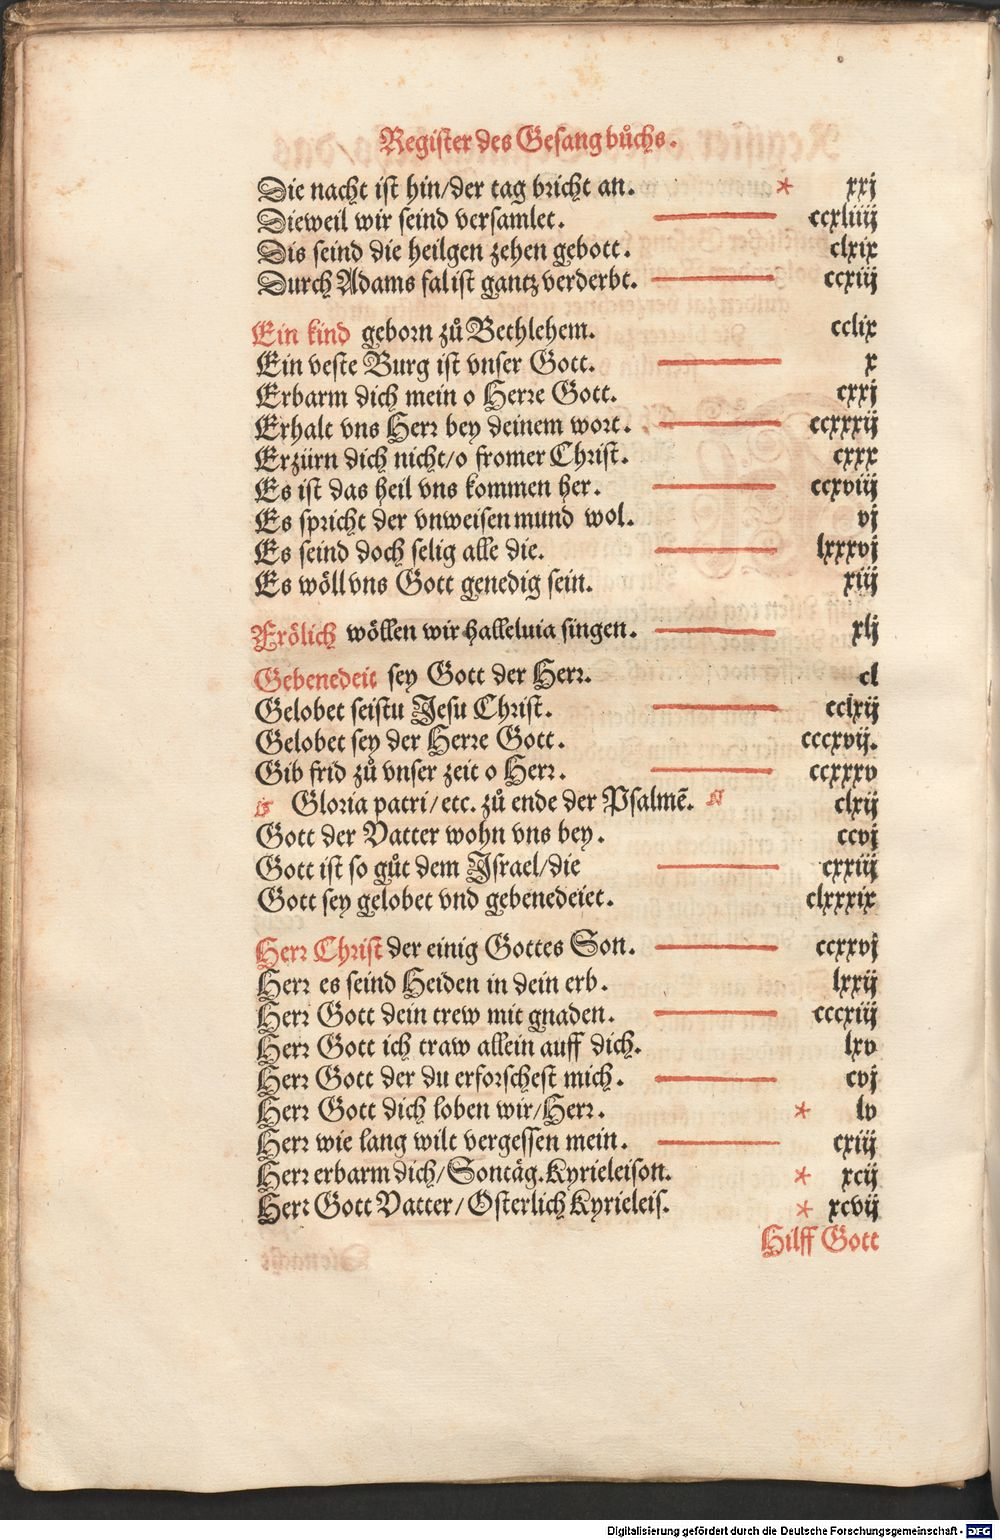 Register des Gesangbuͦchs.
Die nacht ist hin/der tag bricht an. * xxj
Dieweil wir seind versamlet. ccxliiij
Dis seind die heilgen zehen gebott. clxix
Durch Adams fal ist gantz verderbt. ccxiij
Ein kind geborn zuͦ Bethlehem. cclix
Ein veste Burg ist vnser Gott. x
Erbarm dich mein o Herre Gott. cxxj
Erhalt vns Herr bey deinem wort. ccxxxij
Erzürn dich nicht/o fromer Christ. cxxx
Es ist das heil vns kommen her. ccxviij
Es spricht der vnweisen mund wol. vj
Es seind doch selig alle die. lxxxvj
Es wöll vns Gott genedig sein. xiij
Frölich wöllen wir halleluia singen. xlj
Gebenedeit sey Gott der Herr. cl
Gelobet seistu Jesu Christ. cclxij
Gelobet sey der Herre Gott. cccxvij.
Gib frid zuͦ vnser zeit o Herr. ccxxxv
Gloria patri/etc. zuͦ ende der Psalmẽ. clxij
Gott der Vatter wohn vns bey. ccvj
Gott ist so guͦt dem Israel/die cxxiij
Gott sey gelobet vnd gebenedeiet. clxxxix
Herr Christ der einig Gottes Son. ccxxvj
Herr es seind Heiden in dein erb. lxxij
Herr Gott dein trew mit gnaden. cccxiij
Herr Gott ich traw allein auff dich. lxv
Herr Gott der du erforschest mich. cvj
Herr Gott dich loben wir/Herr. * lv
Herr wie lang wilt vergessen mein. cxiij
Herr erbarm dich/Sontäg. Kyrieleison. * xcij
Herr Gott Vatter/Osterlich Kyrieleis. * xcvij
Hilff Gott
Digitalisierung gefördert durch die Deutsche Forschungsgemeinschaft - DFG